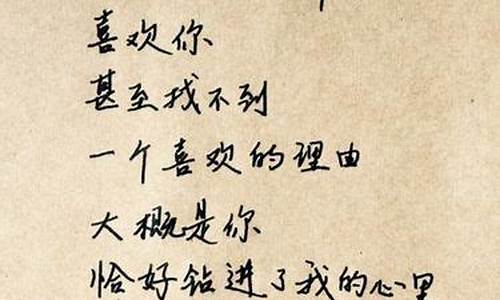 喜欢你
甚至找不到
一个喜欢的理由
大概是你
恰好钻进了我的心里